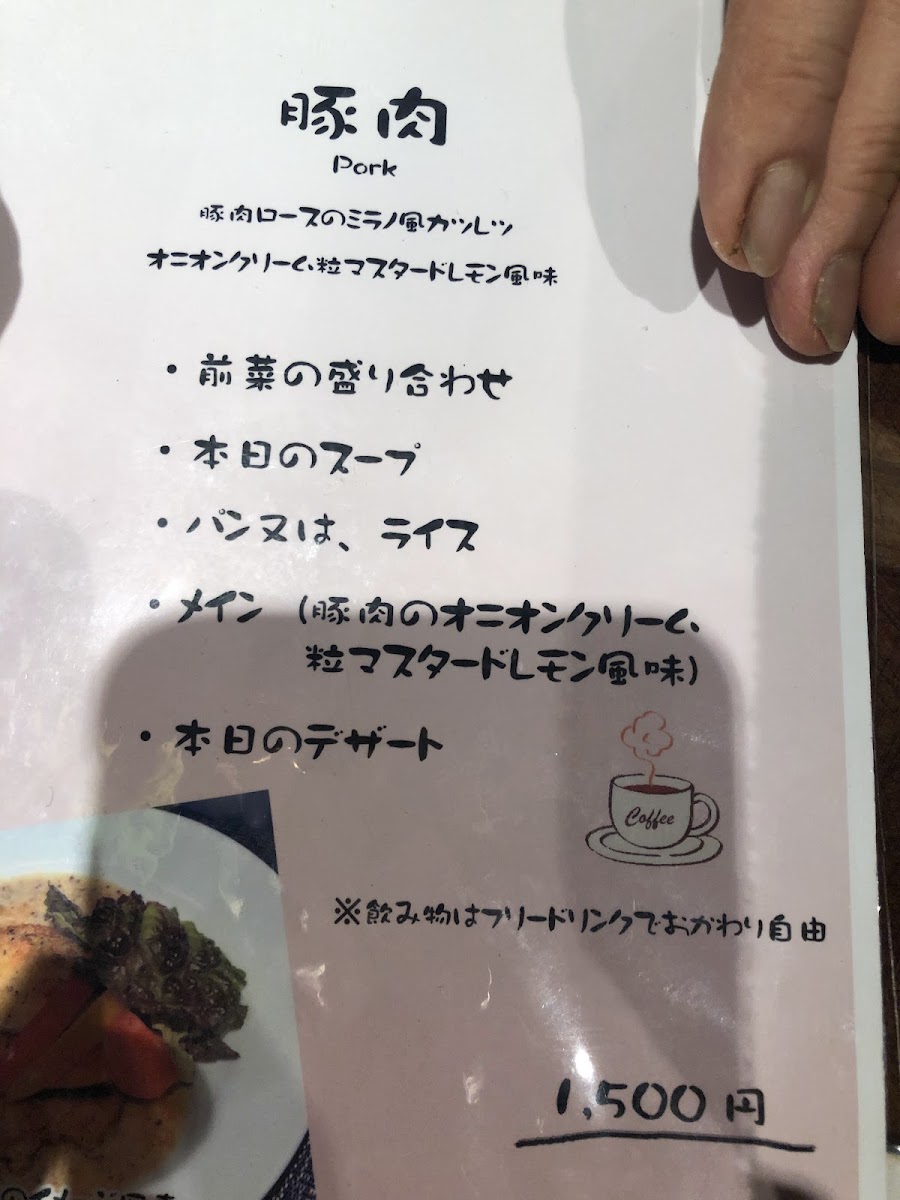 豚肉
Pork
豚肉ロースのミラノ風カツレツ
オニオンクリーム、粒マスタードレモン風味
・前菜の盛り合わせ
・本日のスープ
・パン又は、ライス
・メイン（豚肉のオニオンクリーム、
粒マスタードレモン風味）
・本日のデザート
Coffee
※飲み物はフリードリンクでおかわり自由
1,500円